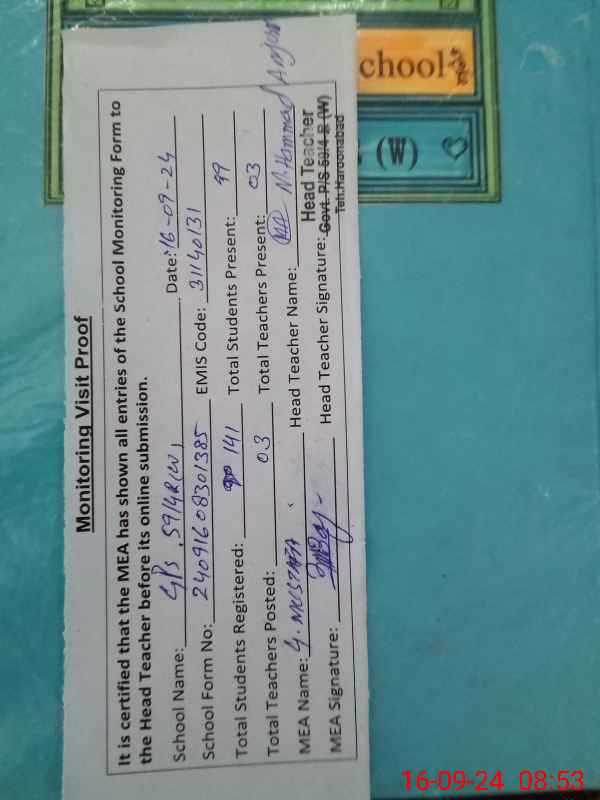 Monitoring Visit Proof
It is certified that the MEA has shown all entries of the School Monitoring Form to
the Head Teacher before its online submission.
School Name: GPS 59/4R(W) Date: 16-09-24
School Form No: 24091608301385 EMIS Code: 31140131
Total Students Registered: 141 Total Students Present: 99
Total Teachers Posted: 03 Total Teachers Present: 03
MEA Name: G. MUSTAFA Head Teacher Name: M. Hammad Anjum
MEA Signature: Head Teacher Signature:
Head Teacher
Govt. P/S 59/4-R (W)
Teh.Haroonabad
chool
(W)
16-09-24 08:53